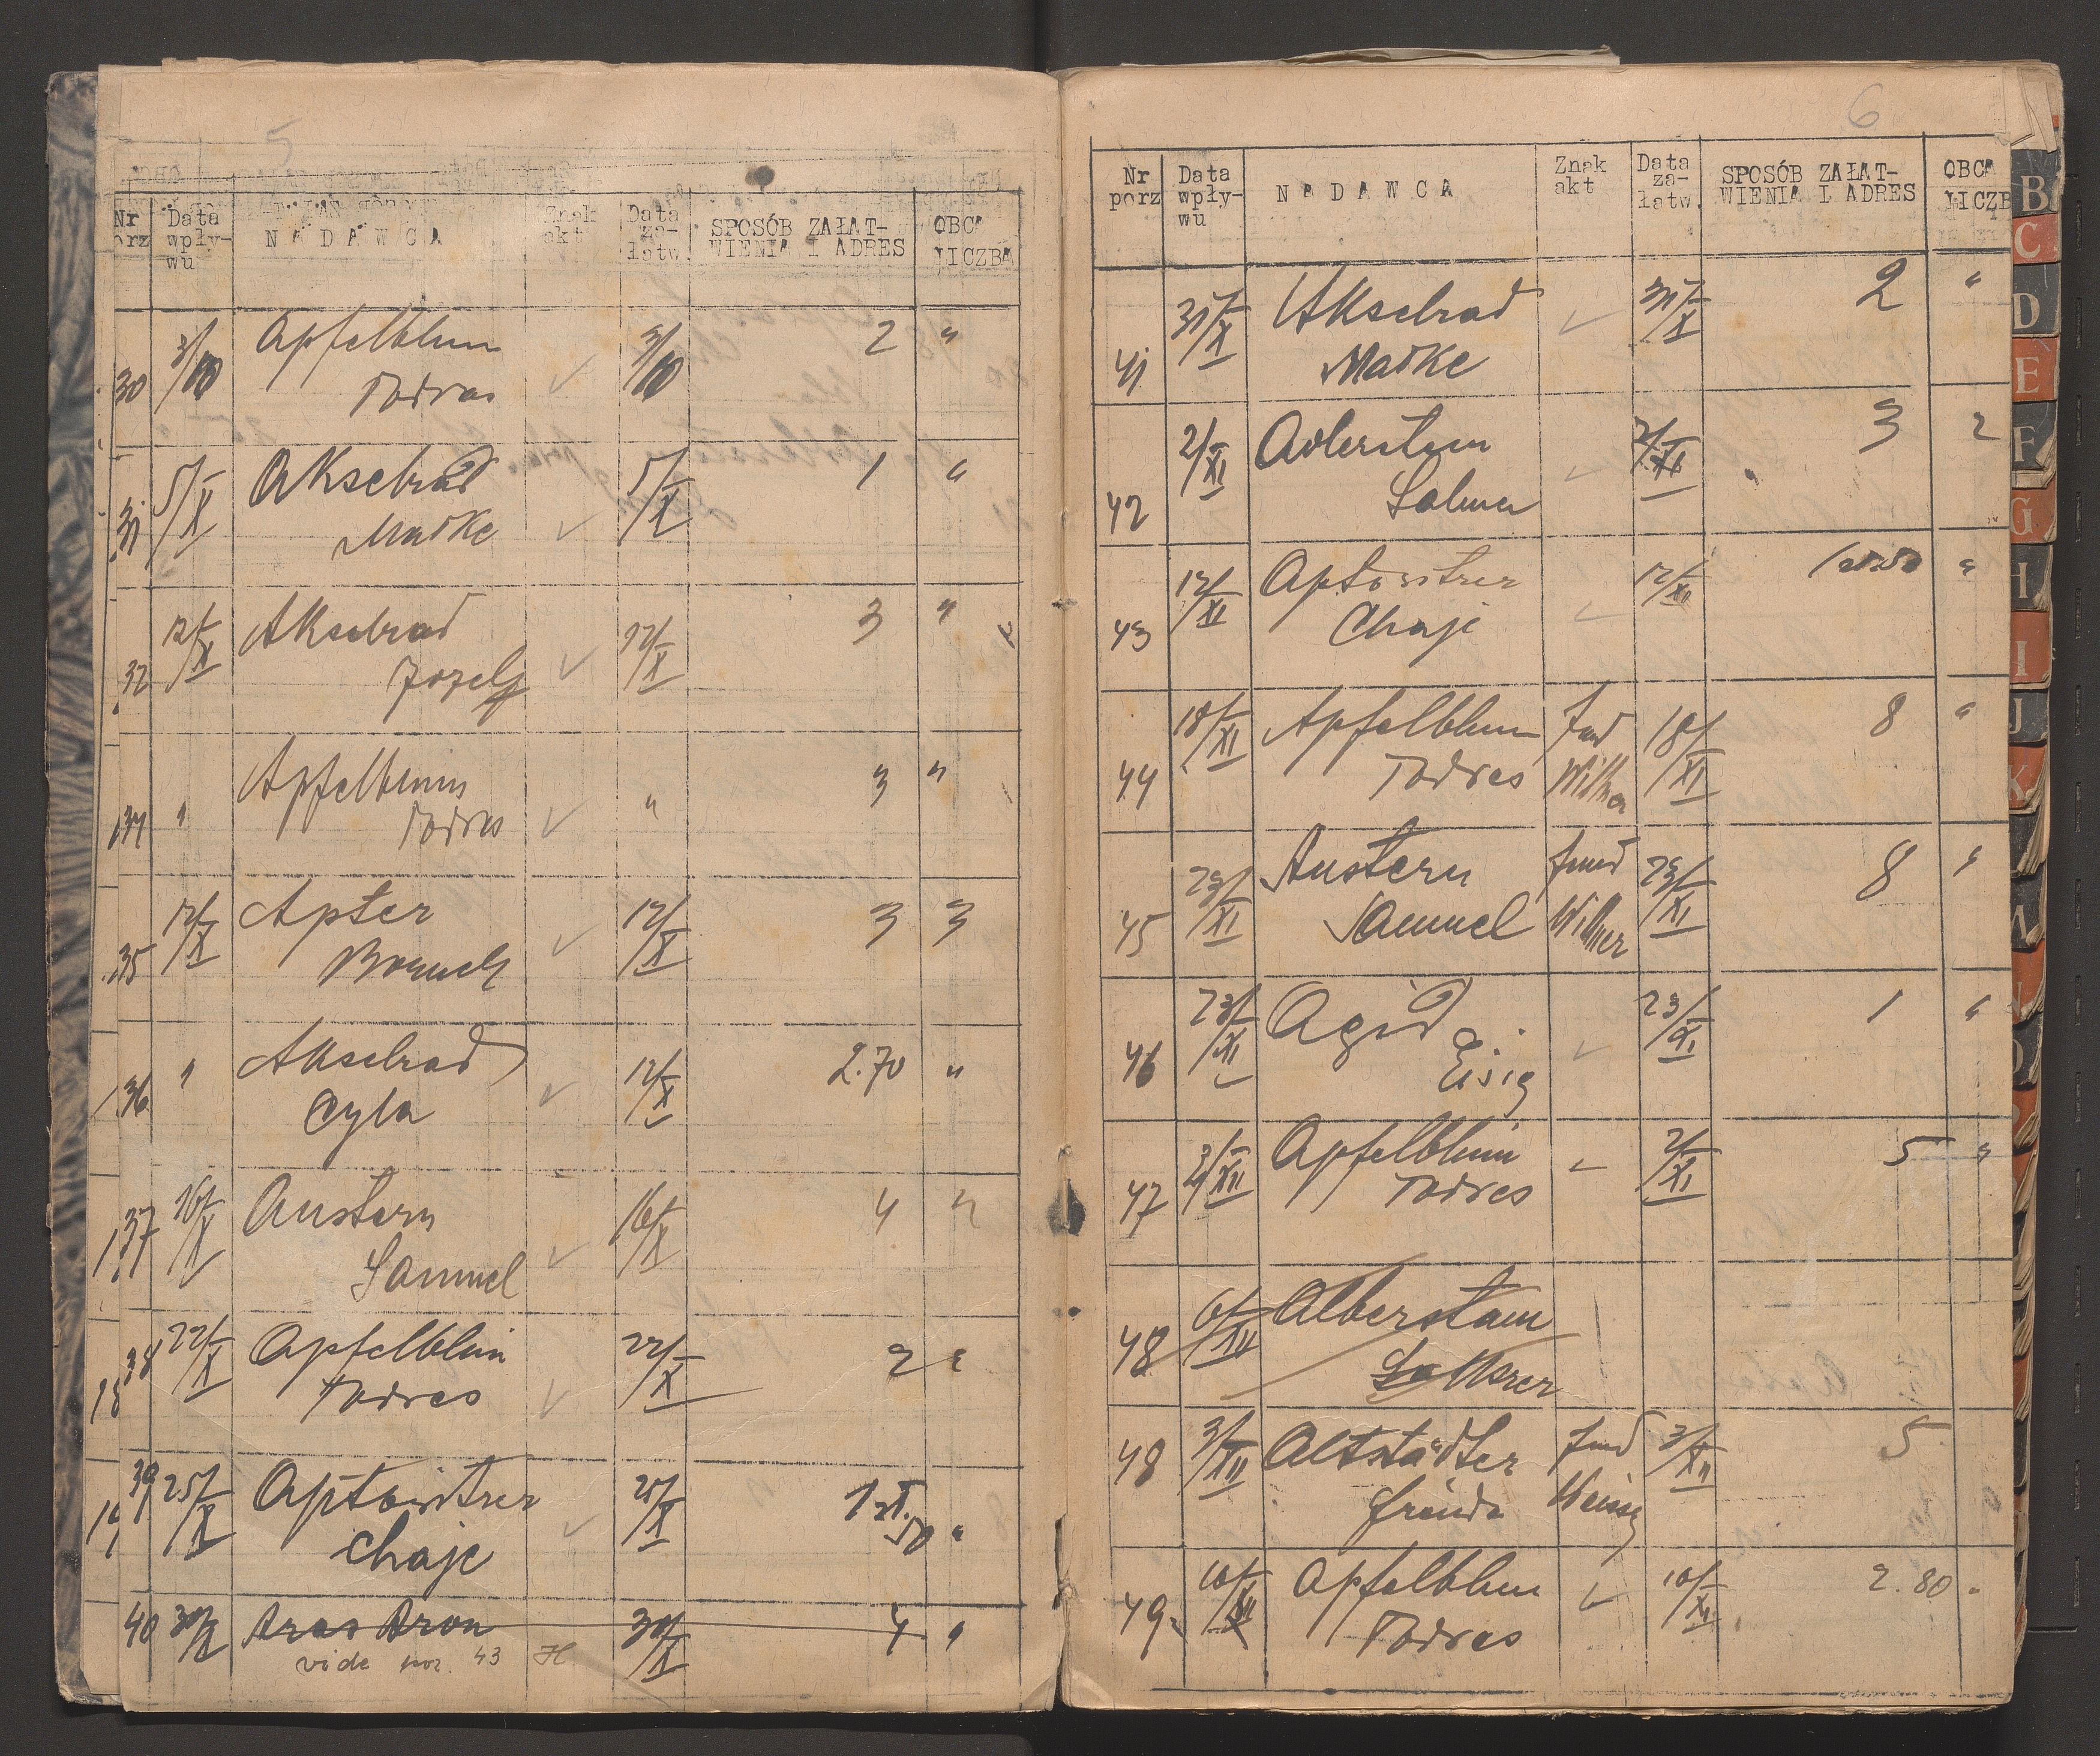 5
Nr porz
Data wpły-wu
NADAWCA
Znak akt
Data za-łatw.
SPOSÓB ZAŁAT-WIENIA I ADRES
OBCA LICZBA
30 3/10 Apfelblum Todras ✓ 3/10 2 "
31 5/X Akselrad Maske ✓ 5/X 1 "
32 12/X Akselrad Jozef ✓ 12/X 3 "
34 " Apfelblum Todres ✓ " 3 "
35 12/X Apter Boruch ✓ 12/X 3 3
36 " Akselrad Cyla ✓ 12/X 2.70 "
37 16/X Austern Samuel ✓ 16/X 4 "
38 22/X Apfelblum Todres ✓ 22/X 2 "
39 25/X Aptowitzer Chaje ✓ 25/X 1 zł. 50 "
40 30/X Aras Aron 30/X 4 "
vide poz. 43 H
6
Nr porz
Data wpły-wu
NADAWCA
Znak akt
Data za-łatw.
SPOSÓB ZAŁAT-WIENIA I ADRES
OBCA LICZB
41 31/X Akselrad Maske ✓ 31/X 2 "
42 2/XI Adlerstein ✓ 2/XI 3 2
43 12/XI Aptowitzer Chaje ✓ 12/XI 1 zł.50 "
44 18/XI Apfelblum Todres fund 18/XI 8 "
45 23/XI Austern Samuel fund 23/XI 8 "
46 23/XI Agid Eisig ✓ 23/XI 1 "
47 2/XII Apfelblum Todres ✓ 2/XI 5 "
48 6/XII Alberstam
48 3/XII Altstädter Freude fund 3/XII 5
49 10/XII Apfelblum Todres ✓ 10/XII 2.80 "
B
C
D
E
F
G
H
I
J
K